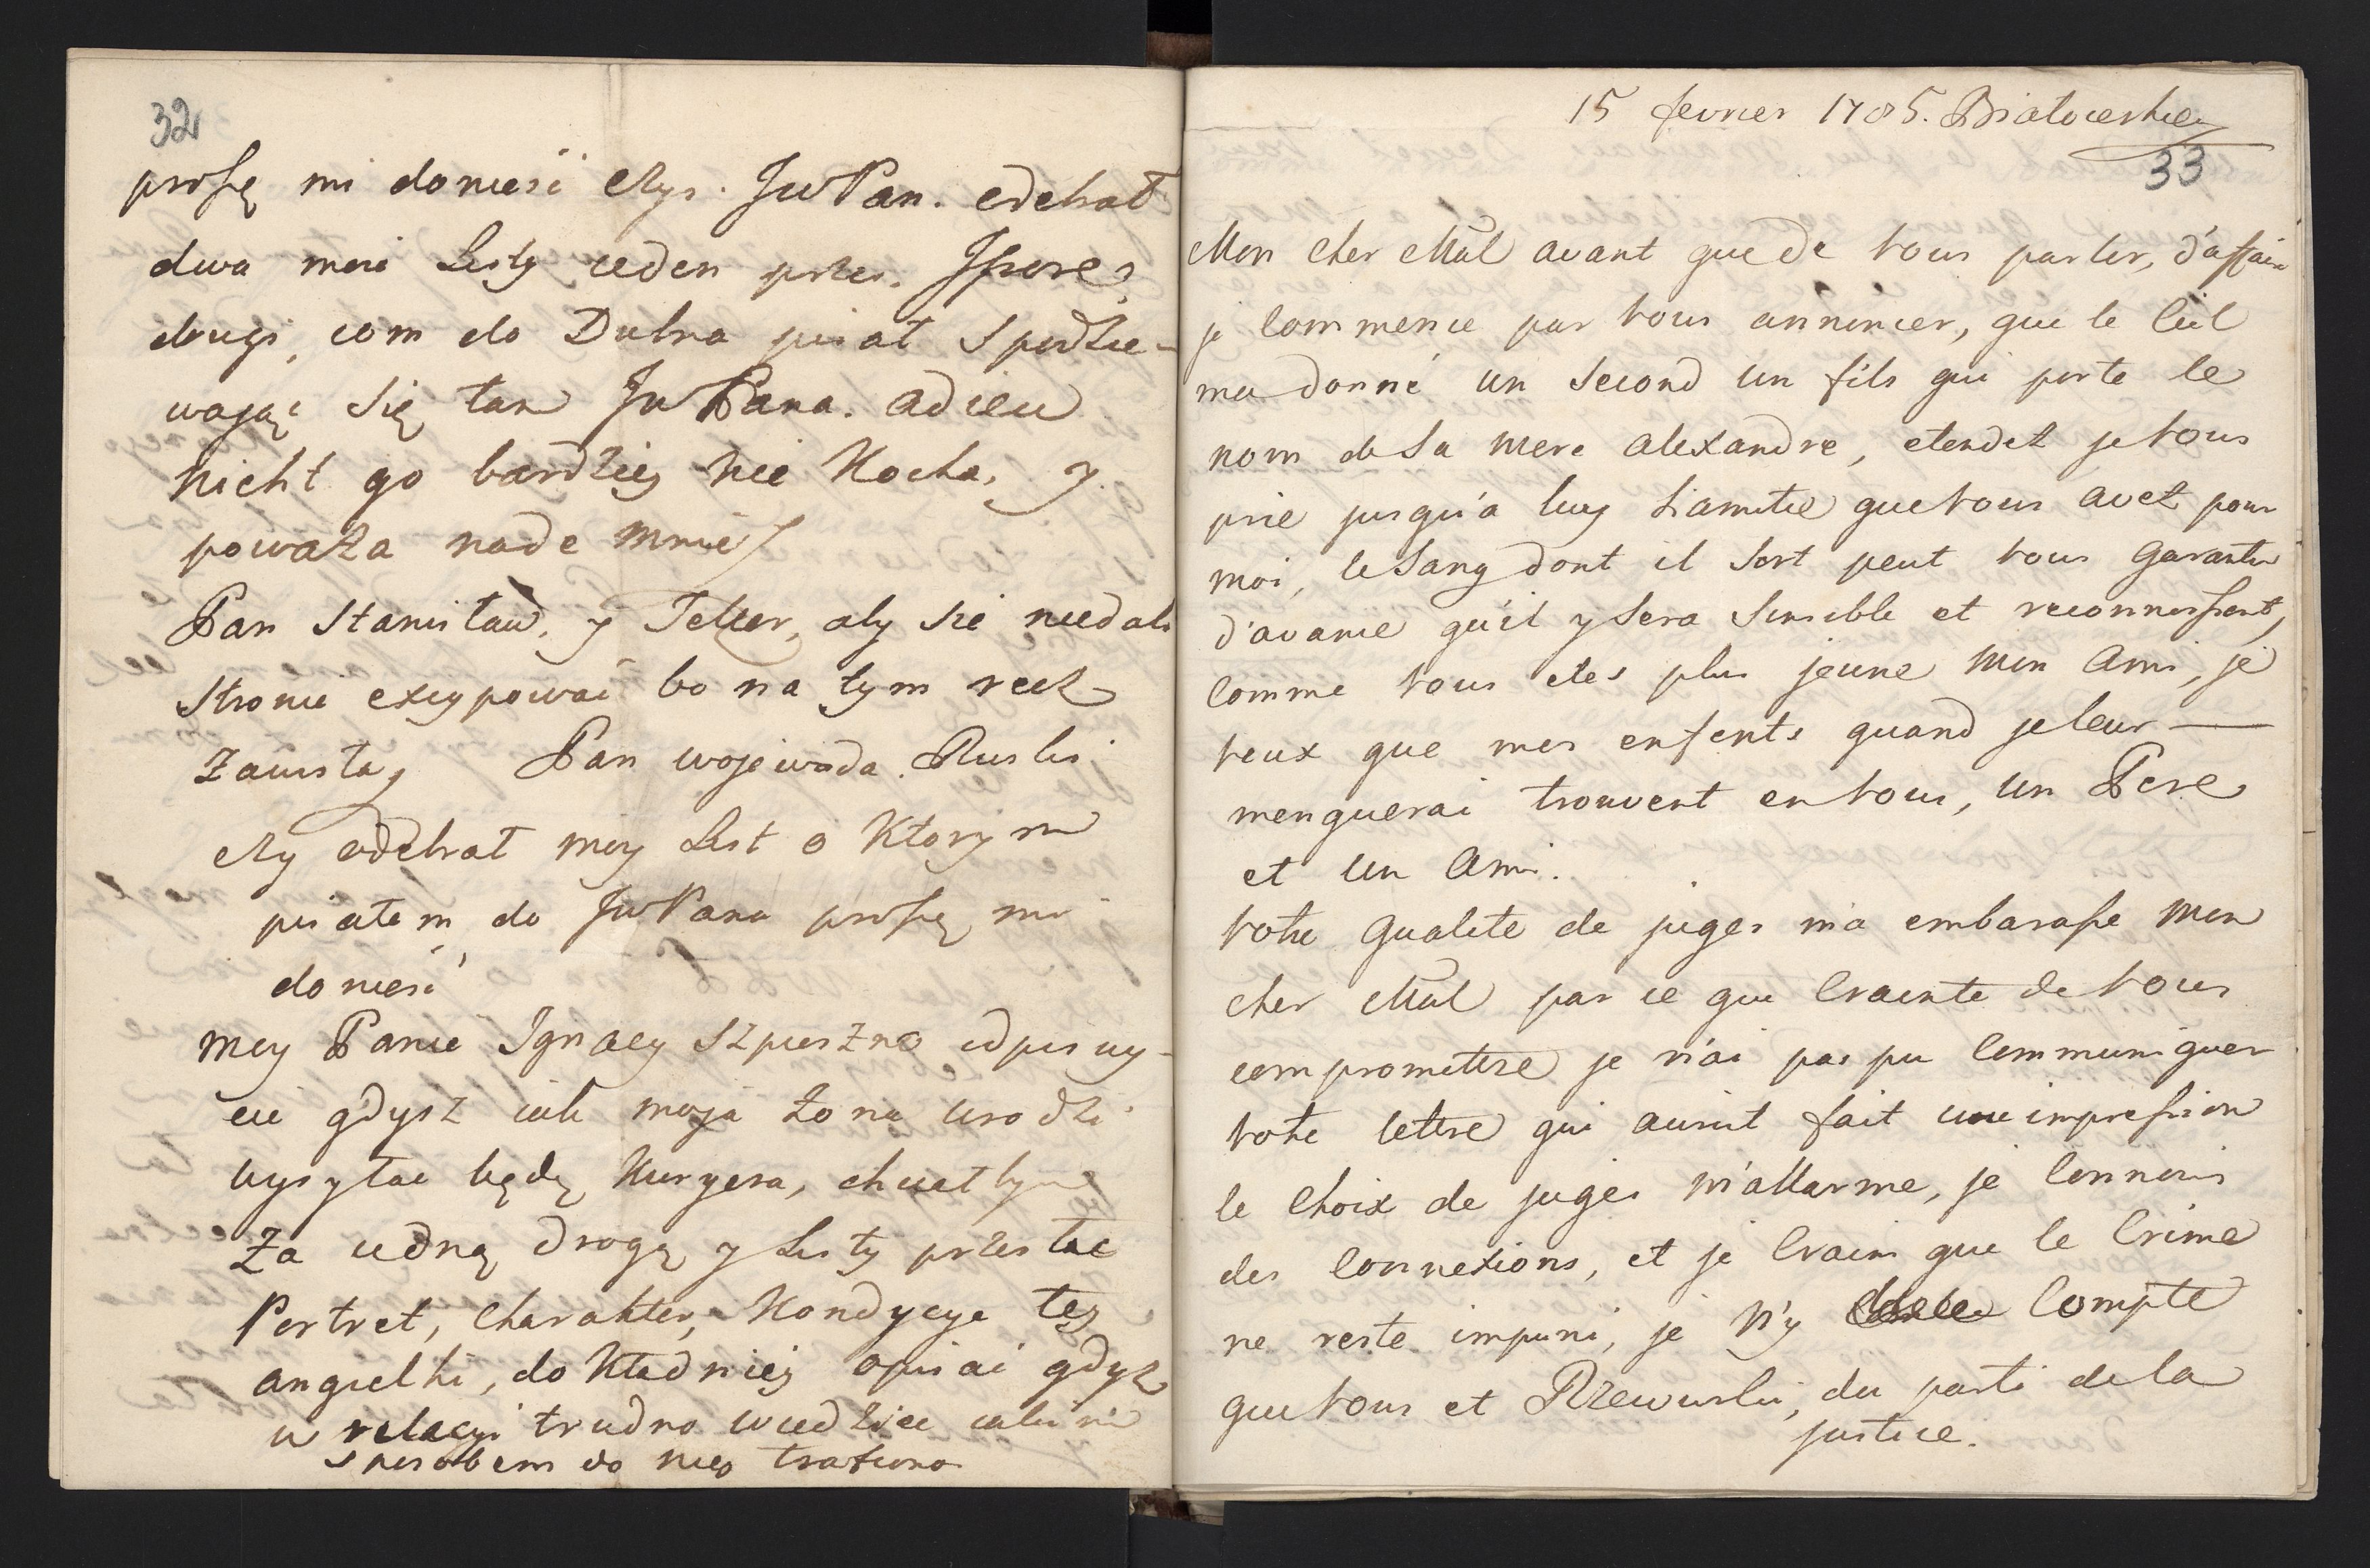 32
proszę mi donieść czys. JwPan. odebrał
dwa moie Listy ieden przes.
drugi, com do Dubna pisał Spodzie-
waiąc się tam JwPana. adieu
nicht go bardziey nie Kocha, y
poważa nade mnie
Pan Stanisław, y Teller, aby sie niedali
stronie excypować bo na tym rzecz
zawisła, Pan wojewoda Ruski
czy odebrał moy List o Ktorym
pisałem do JwPana proszę mi
donieść
moy Panie Ignacy Szpieszno odpisuy-
cie gdysz iak moja żona urodzi
wysyłac będę Kuryera, chciałbym
za iedną drogą y Listy przesłac
Portret, Charakter, Kondycye tey
angielki, dokładniey opisać gdyż
w relacyi trudno wiedziec iakim
sposobem do niey trafiono
15 fevrier 1785. Białocerkiew
33
Mon cher Mal avant que de vous parler, d'affaire
je commence par vous annoncer, que le Ciel
ma donné un second un fils qui porte le
nom de Sa mere alexandre, etendez je vous
prie jusqu'a luy L'amitié que vous avez pour
moi, le Sang dont il sort peut vous garantir
d'avance qu'il y sera Sensible et reconnessent,
comme vous etes plus jeune mon ami, je
veux que mes enfents quand je leur —
menquerai trouvent en vous, un Pere
et un ami.
votre qualité de juges m'a embarassé mon
cher Mal par ce que Crainte de vous
compromettre je n'ai pas pu Communiquer
votre lettre qui auroit fait une impression
le Choix de juges m'allarme, je Connois
des Connexions, et je Crains que le Crime
ne reste impuni, je n'y Compte
que vous et Rzewuski, du parti de la
justice.